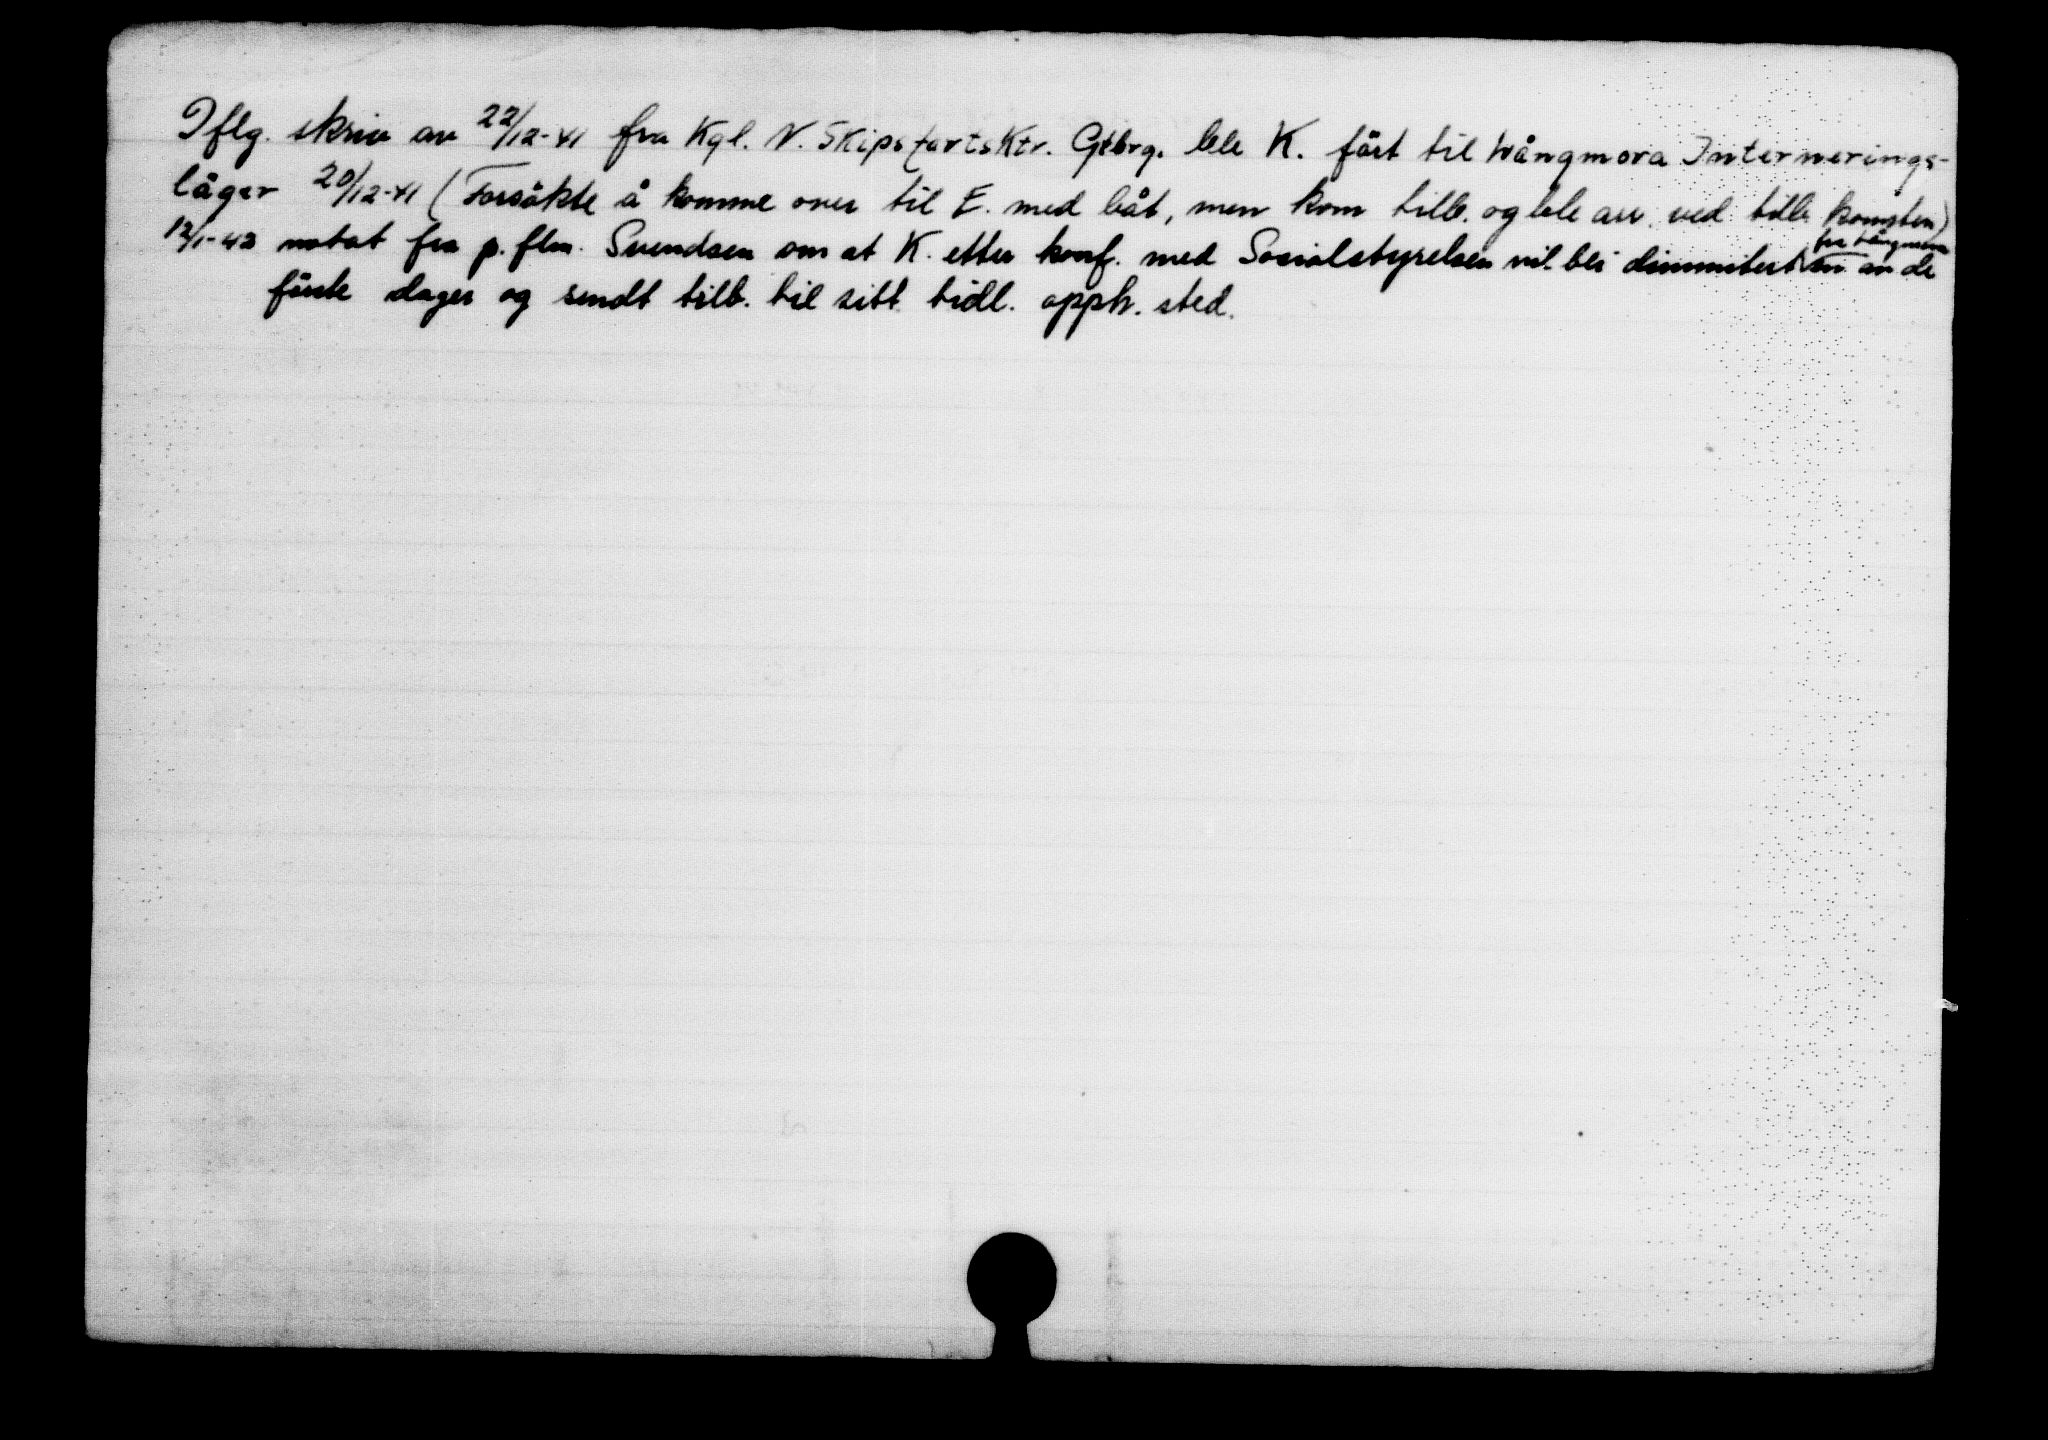 Iflg. skriv av 22/12-41 fra Kgl. N. SkipsfartsKtr. Gtbrg. ble K. fört til Vångmora Internerings-
läger 20/12-41 (Forsökte å komme over til E. med båt, men kom tilb. og ble arr. ved tilb. komsten)
12/1-42 notat fra p.flm. Svendsen om at K. etter konf. med Socialstyrelsen vil bli dimmitert fra Långmora en av de
förste dager og sendt tilb. til sitt tidl. opph. sted.